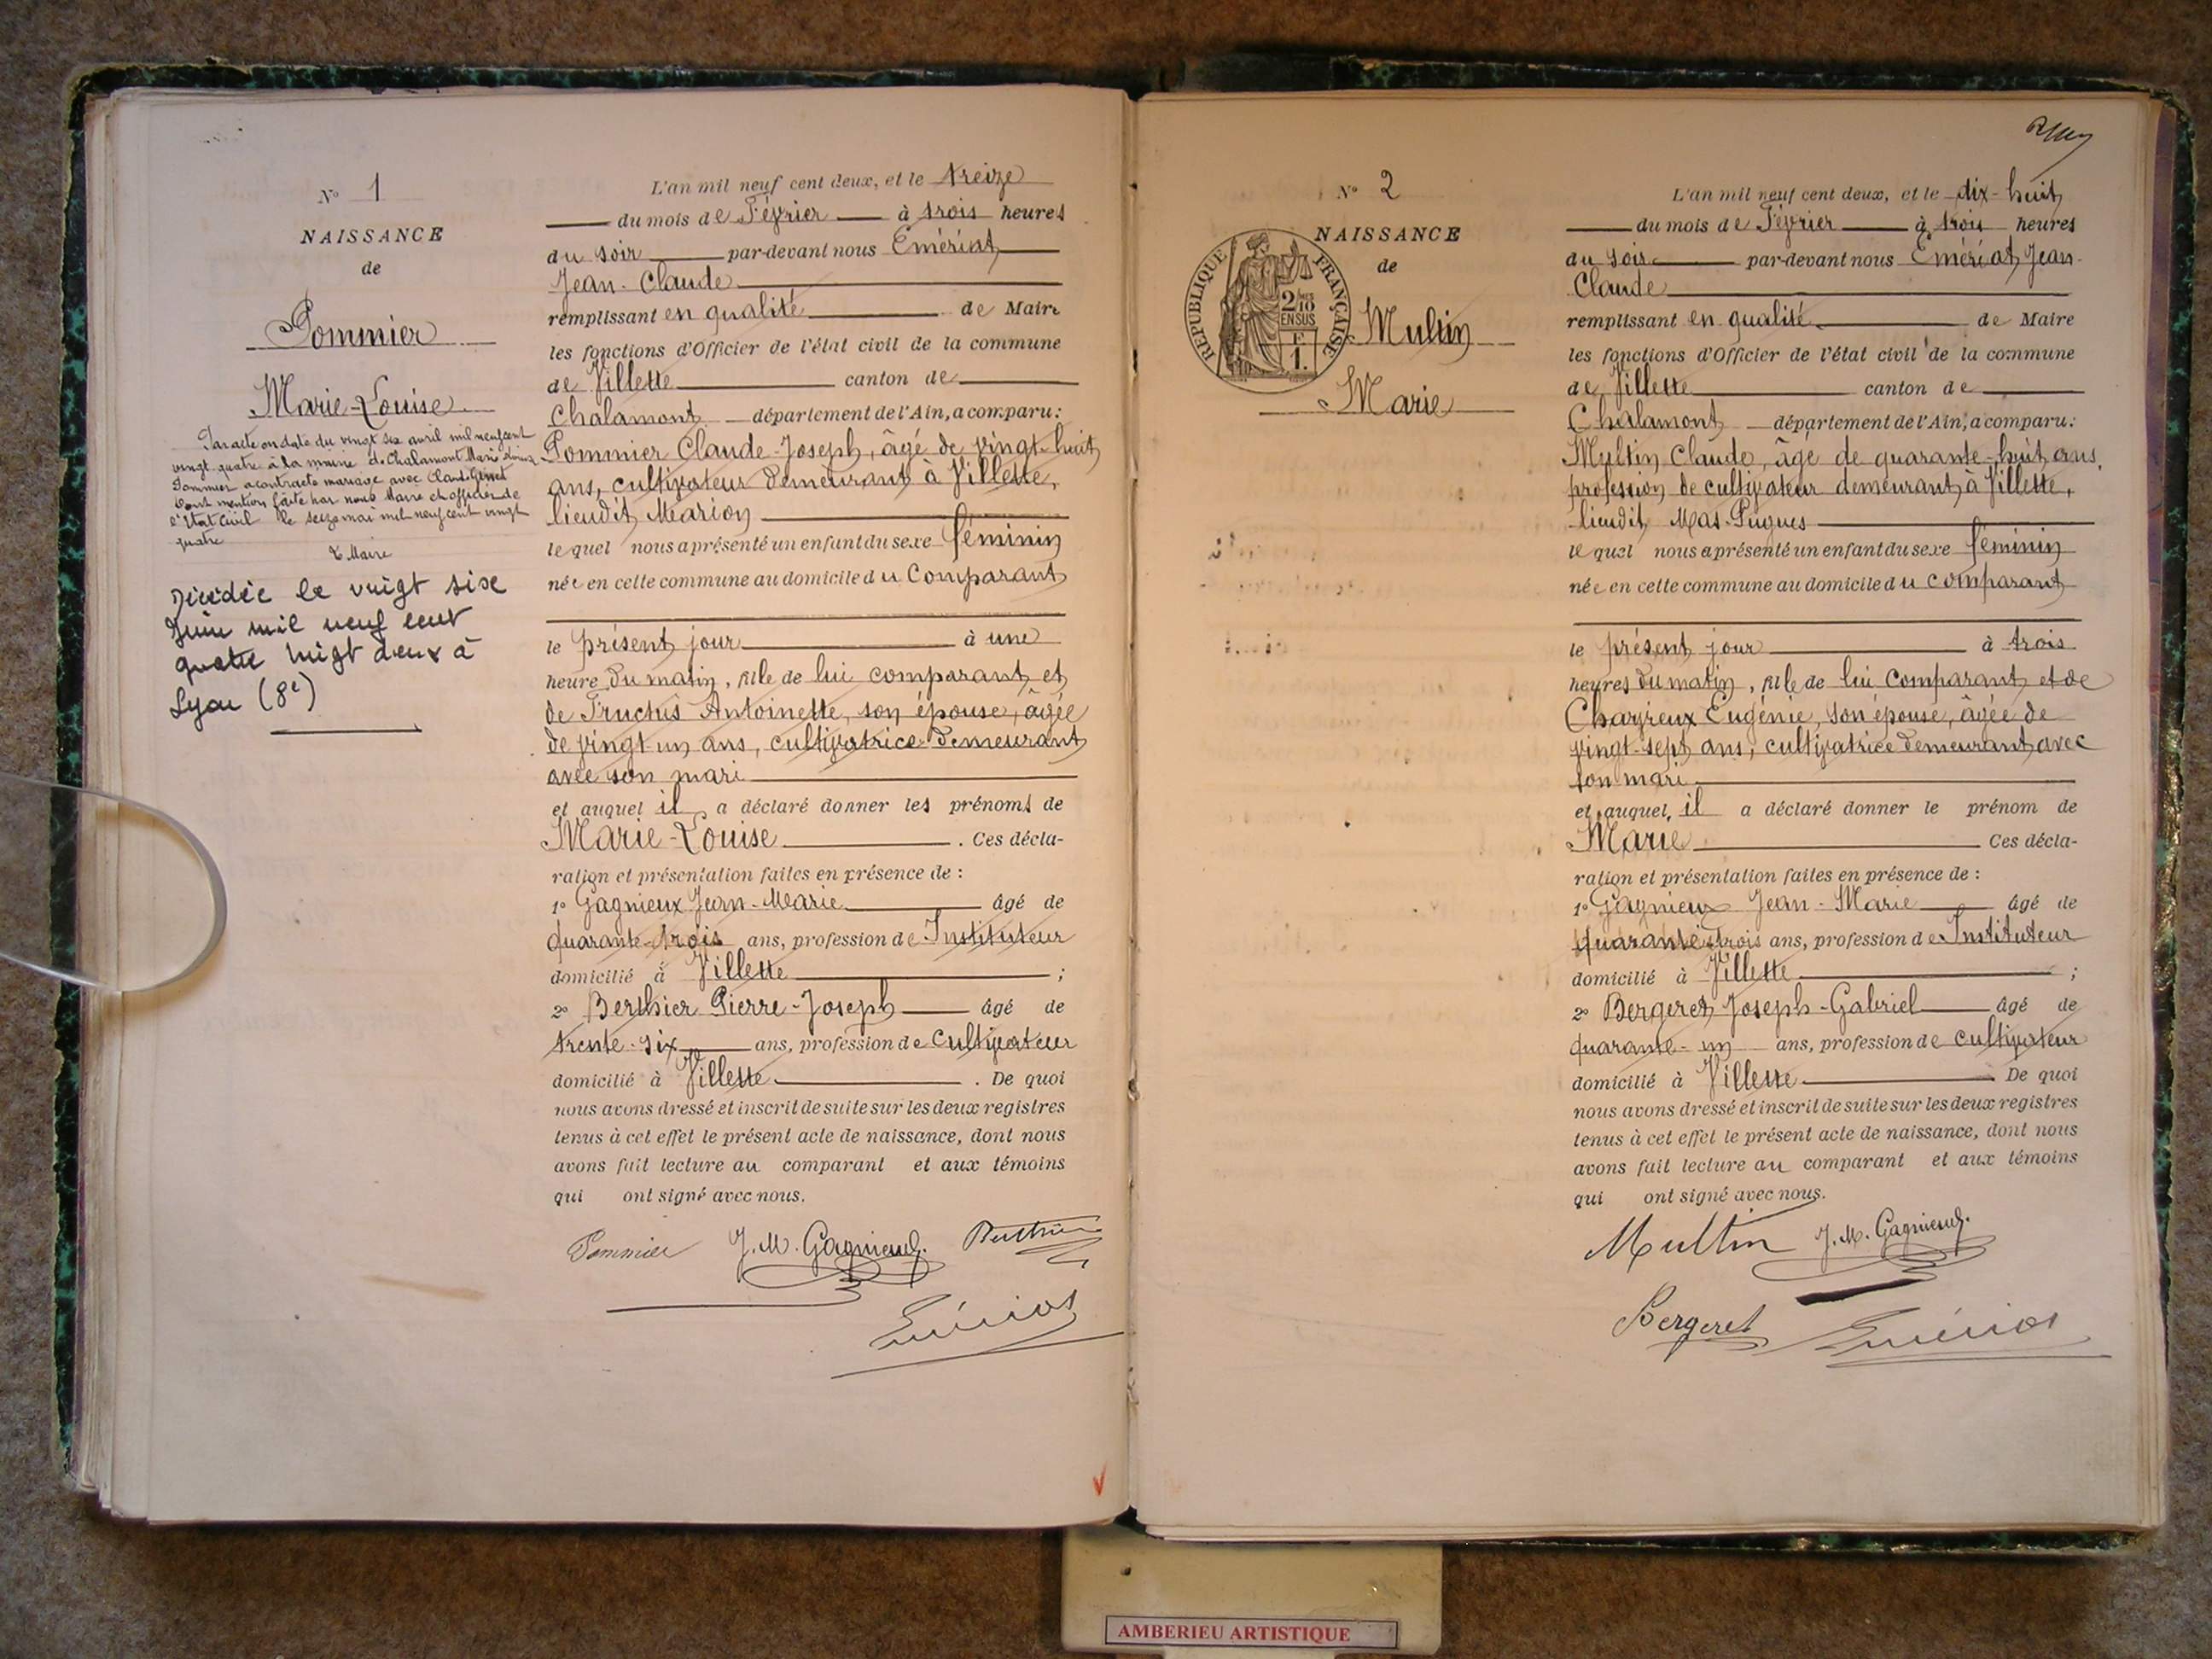 N° 1
NAISSANCE
de
Pommier
Marie-Louise
Par acte en date du vingt six avril mil neuf cent
vingt quatre à la mairie de Chalamont Marie Louise
Pommier a contracté mariage avec Claude
Dont mention faite par nous Maire et officier de
l'Etat Civil le seize mai mil neuf cent vingt
quatre
Le Maire
Décédée le vingt six
Juin mil neuf cent
quatre vingt deux à
Lyon (8e)
L'an mil neuf cent deux, et le treize
du mois de Février à trois heures
du soir par-devant nous Emériat
Jean-Claude
remplissant en qualité de Maire
les fonctions d'Officier de l'état civil de la commune
de Villette canton de
Chalamont département de l'Ain, a comparu:
Pommier Claude-Joseph, âgé de vingt-huit
ans, cultivateur demeurant à Villette,
lieudit Marion
lequel nous a présenté un enfant du sexe féminin
née en cette commune au domicile du Comparant
le présent jour à une
heure du matin, fille de lui comparant et
de Truchis Antoinette, son épouse, âgée
de vingt un ans, cultivatrice demeurant
avec son mari
et auquel il a déclaré donner les prénoms de
Marie-Louise. Ces décla-
ration et présentation faites en présence de :
1° Gagnieux Jean-Marie âgé de
quarante-trois ans, profession de Instituteur
domicilié à Villette ;
2° Berthier Pierre-Joseph âgé de
trente-six ans, profession de cultivateur
domicilié à Villette. De quoi
nous avons dressé et inscrit de suite sur les deux registres
tenus à cet effet le présent acte de naissance, dont nous
avons fait lecture au comparant et aux témoins
qui ont signé avec nous.
Pommier J. M. Gagnieux. Berthier
Emériat
N° 2
NAISSANCE
de
Multin
Marie
RÉPUBLIQUE FRANÇAISE
2/10
EN SUS
1.
L'an mil neuf cent deux, et le dix-huit
du mois de Février à trois heures
du soir par-devant nous Emériat Jean-
Claude
remplissant en qualité de Maire
les fonctions d'Officier de l'état civil de la commune
de Villette canton de
Chalamont département de l'Ain, a comparu:
Multin Claude, âgé de quarante-huit ans,
profession de cultivateur demeurant à Villette,
lieudit Mas-Pugues
lequel nous a présenté un enfant du sexe féminin
née en cette commune au domicile du comparant
le présent jour à trois
heures du matin, fille de lui comparant et de
Charvieux Eugénie, son épouse, âgée de
vingt-sept ans, cultivatrice demeurant avec
son mari
et auquel il a déclaré donner le prénom de
Marie Ces décla-
ration et présentation faites en présence de :
1° Gagnieux Jean-Marie âgé de
quarante-trois ans, profession de Instituteur
domicilié à Villette ;
2° Bergeret Joseph-Gabriel âgé de
quarante-un ans, profession de cultivateur
domicilié à Villette De quoi
nous avons dressé et inscrit de suite sur les deux registres
tenus à cet effet le présent acte de naissance, dont nous
avons fait lecture au comparant et aux témoins
qui ont signé avec nous.
Multin J. M. Gagnieux.
Bergeret Emériat
AMBERIEU ARTISTIQUE